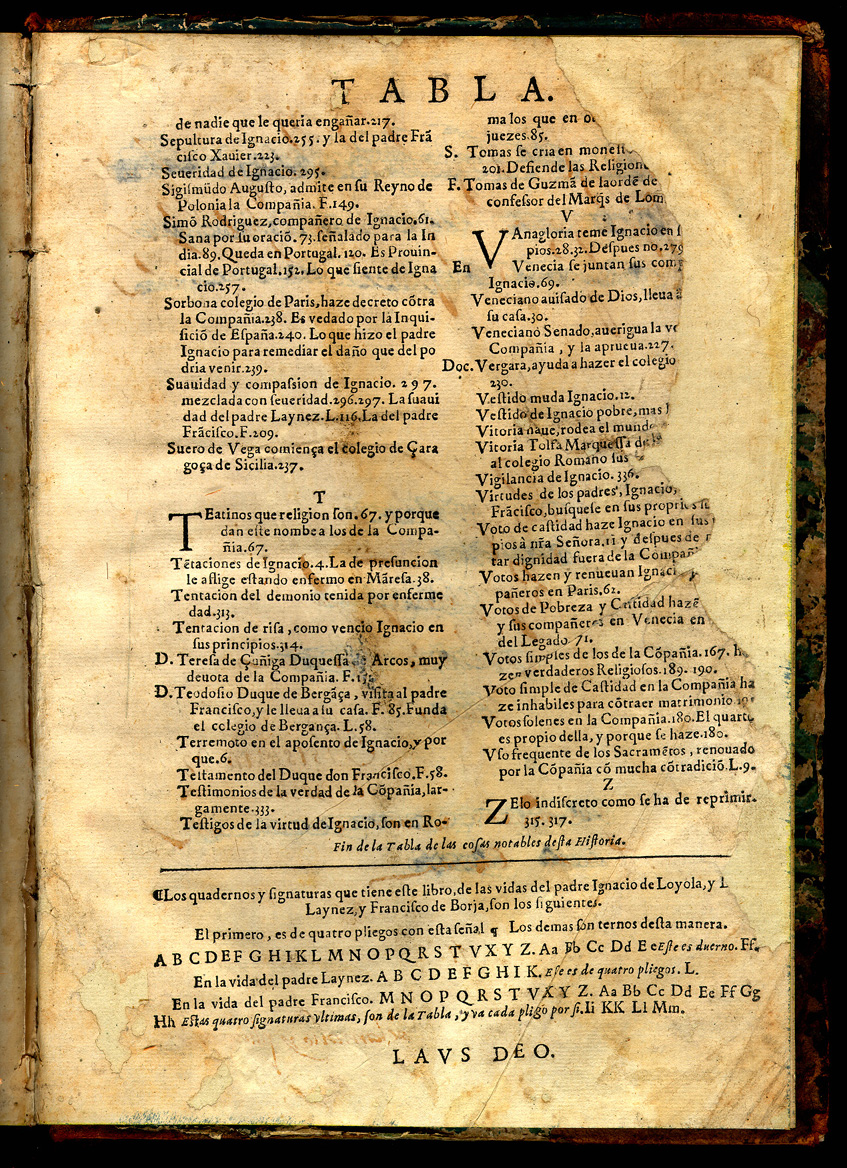 TABLA.
de nadie que le queria engañar.217.
Sepultura de Ignacio.255. y la del padre Frã
cisco Xauier.223.
Seueridad de Ignacio. 295.
Sigismũdo Augusto, admite en su Reyno de
Polonia la Compañia. F.149.
Simõ Rodriguez, compañero de Ignacio.61.
Sana por su oraciõ. 73. señalado para la In
dia.89. Queda en Portugal. 120. Es Prouin-
cial de Portugal.152. Lo que siente de Igna
cio.257.
Sorbona colegio de Paris, haze decreto cõtra
la Compañia.238. Es vedado por la Inqui-
siciõ de España.240. Lo que hizo el padre
Ignacio para remediar el daño que del po
dria venir.239.
Suauidad y compassion de Ignacio. 297.
mezclada con seueridad.296.297. La suaui
dad del padre Laynez. L.116. La del padre
Frãcisco. F.209.
Suero de Vega comiença el colegio de Çara
goça de Sicilia.237.
T
TEatinos que religion son. 67. y porque
dan este nombe a los de la Compa-
ñia.67.
Tẽtaciones de Ignacio.4. La de presuncion
le aflige estando enfermo en Mãresa.38.
Tentacion del demonio tenida por enferme
dad.313.
Tentacion de risa, como vencio Ignacio en
sus principios.314.
D. Teresa de Çuñiga Duquessa Arcos, muy
deuota de la Compañia. F.
D. Teodosio Duque de Bergãça, visita al padre
Francisco, y le lleua a su casa. F. 85. Funda
el colegio de Bergança. L.58.
Terremoto en el aposento de Ignacio, y por
que.6.
Testamento del Duque don Francisco. F.58.
Testimonios de la verdad de la Cõpañia, lar-
gamente.333.
Testigos de la virtud de Ignacio, son en Ro-
ma los que en
juezes.85.
S. Tomas se cria en
201. Defiende las
F. Tomas de Guzmã de la ordẽ de
confessor del Marq̃s de
V
VAnagloria teme Ignacio en
pios.28.32. Despues no.279
En Venecia se juntan sus
Ignacio.69.
Veneciano auisado de Dios, lleua
su casa.30.
Veneciano Senado, auerigua la
Compañia, y la aprueua.227.
Doc. Vergara, ayuda a hazer el colegio
230.
Vestido muda Ignacio.12.
Vestido de Ignacio pobre, mas
Vitoria naue, rodea el
Vitoria Tolfa Marquessa
al colegio Romano sus
Vigilancia de Ignacio. 336.
Virtudes de los padres, Ignacio,
Frãcisco, busquese en sus
Voto de castidad haze Ignacio en sus
pios à nr̃a Señora.11 y despues de
tar dignidad fuera de la
Votos hazen y renueuan
pañeros en Paris.62.
Votos de Pobreza y Castidad hazẽ
y sus compañeros en Venecia en
del Legado 71.
Votos simples de los de la Cõpañia. 167.
zen verdaderos Religiosos. 189. 190.
Voto simple de Castidad en la Compañia ha
ze inhabiles para cõtraer matrimonio
Votos solenes en la Compañia.180. El quarto
es propio della, y porque se haze.180.
Vso frequente de los Sacramẽtos, renouado
por la Cõpañia cõ mucha cõtradiciõ. L.9.
Z
ZElo indiscreto como se ha de reprimir.
315. 317.
Fin de la Tabla de las cosas notables desta Historia.
¶Los quadernos y signaturas que tiene este libro, de las vidas del padre Ignacio de Loyola, y
Laynez, y Francisco de Borja, son los siguientes.
El primero, es de quatro pliegos con esta señal ¶ Los demas són ternos desta manera.
A B C D E F G H I K L M N O P Q R S T V X Y Z. Aa Bb Cc Dd E e Este es duerno. Ff.
En la vida del padre Laynez. A B C D E F G H I K. Ese es de quatro pliegos. L.
En la vida del padre Francisco. M N O P Q R S T V X Y Z. Aa Bb Cc Dd Ee Ff Gg
Hh Estas quatro signaturas vltimas, son de la Tabla, y va cada pligo por si. Ii KK Ll Mm.
LAVS DEO.